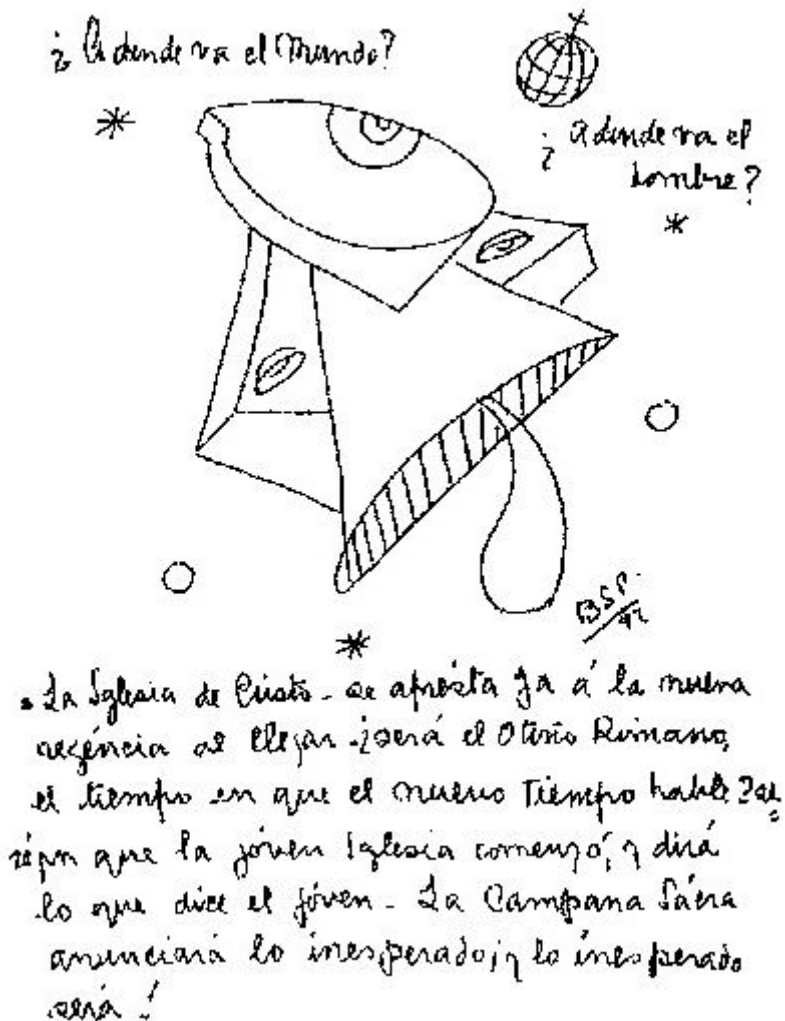 ¿Adonde va el Mundo?
¿Adonde va el
hombre?
BSP.
La Iglesia de Cristo - se apresta ya á la nueva
regéncia al llegar - ¿será el Otoño Romano,
el tiempo en que el nuevo Tiempo hable? Se
que la jóven Iglesia comenzó, y dirá
lo que dice el jóven - La Campana Sácra
anunciará lo inesperado; y lo inesperado
será!